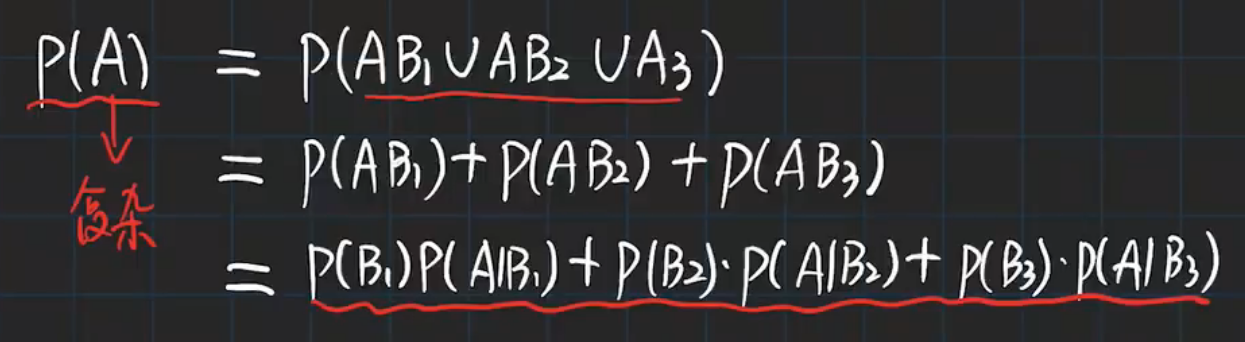 P(A) = P(AB₁∪AB₂∪A₃)
= P(AB₁)+P(AB₂)+P(AB₃)
复杂
= P(B₁)P(A|B₁)+P(B₂)·P(A|B₂)+P(B₃)·P(A|B₃)